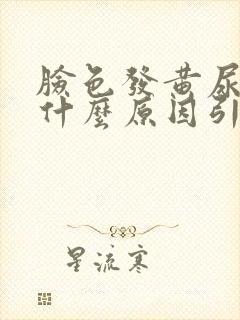 臉色發黃尿
什麼原因引
星流寒